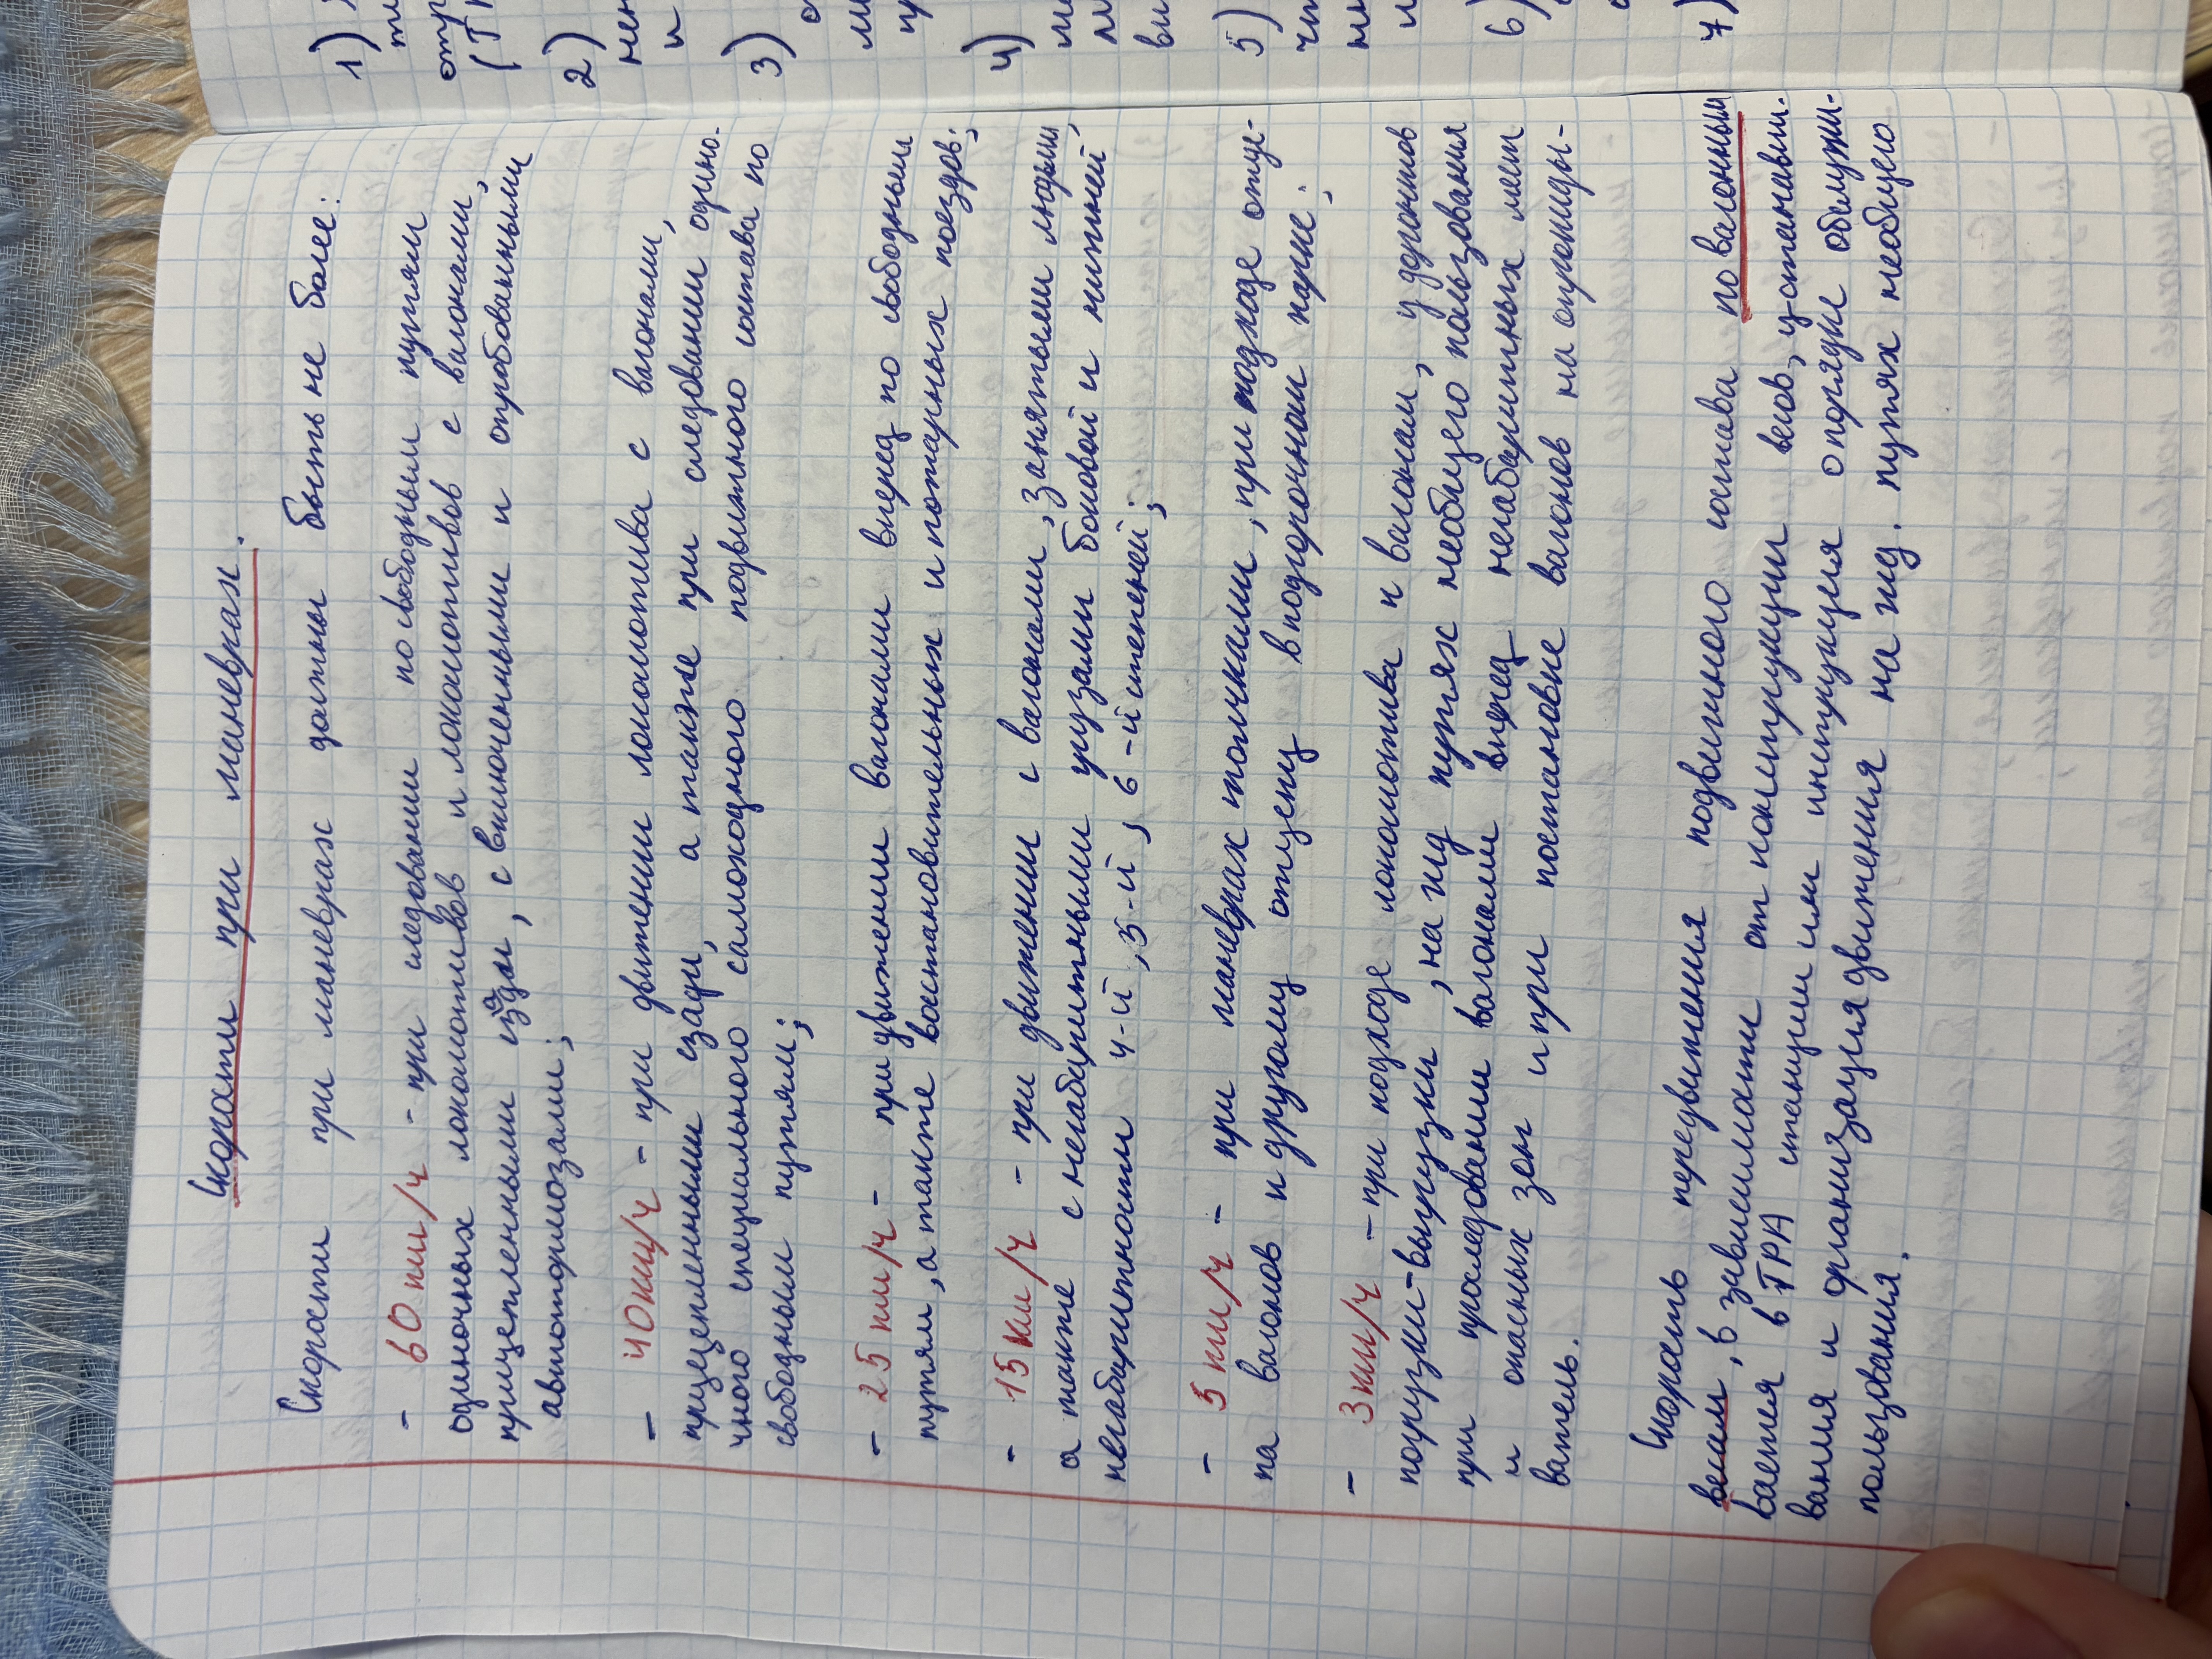 Скорости при маневрах.
Скорости при маневрах должны быть не более:
- 60 км/ч - при следовании по свободным путям
одиночных локомотивов и локомотивов с вагонами,
прицепленными сзади, с включенными и опробованными
автотормозами;
- 40 км/ч - при движении локомотива с вагонами,
прицепленными сзади, а также при следовании одино-
чного специального самоходного подвижного состава по
свободным путям;
- 25 км/ч - при движении вагонами вперед по свободным
путям, а также восстановительных и пожарных поездов;
- 15 км/ч - при движении с вагонами, занятыми людьми,
а также с негабаритными грузами боковой и нижней
негабаритности 4-й, 5-й, 6-й степеней;
- 5 км/ч - при маневрах толчками, при подходе отце-
па вагонов к другому отцепу в подгорочном парке;
- 3 км/ч - при подходе локомотива к вагонам, у фронтов
погрузки-выгрузки, на жд путях необщего пользования
при проследовании вагонами вперед негабаритных мест
и опасных зон и при постановке вагонов на опрокиды-
ватель.
Скорость передвижения подвижного состава по вагонным
весам, в зависимости от конструкции весов, устанавли-
вается в ТРА станции или инструкция о порядке обслужи-
вания и организация движения на жд. путях необщего
пользования.
1)
2)
3)
4)
5)
6)
7)